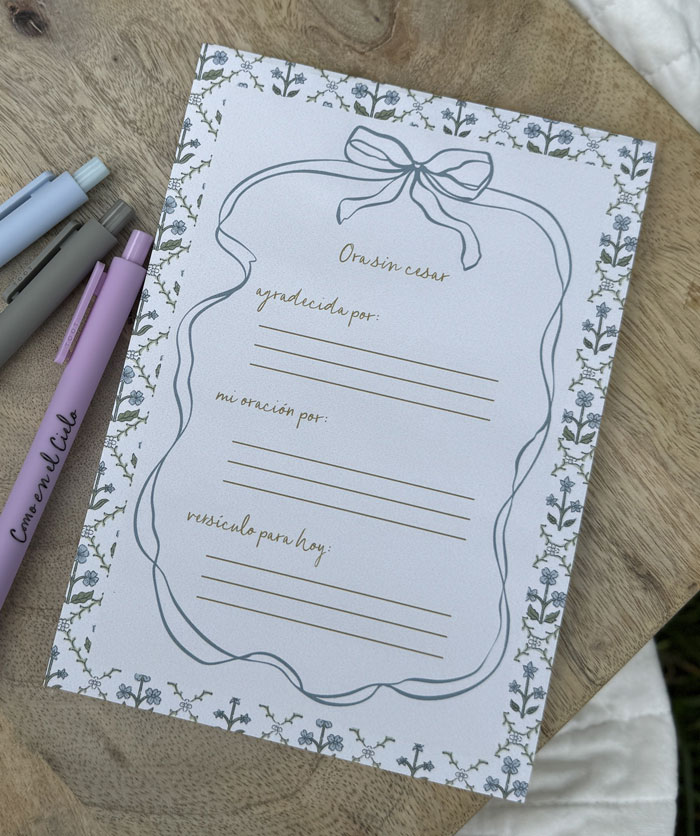 Ora sin cesar
agradecida por:
mi oración por:
versículo para hoy:
Como en el Cielo